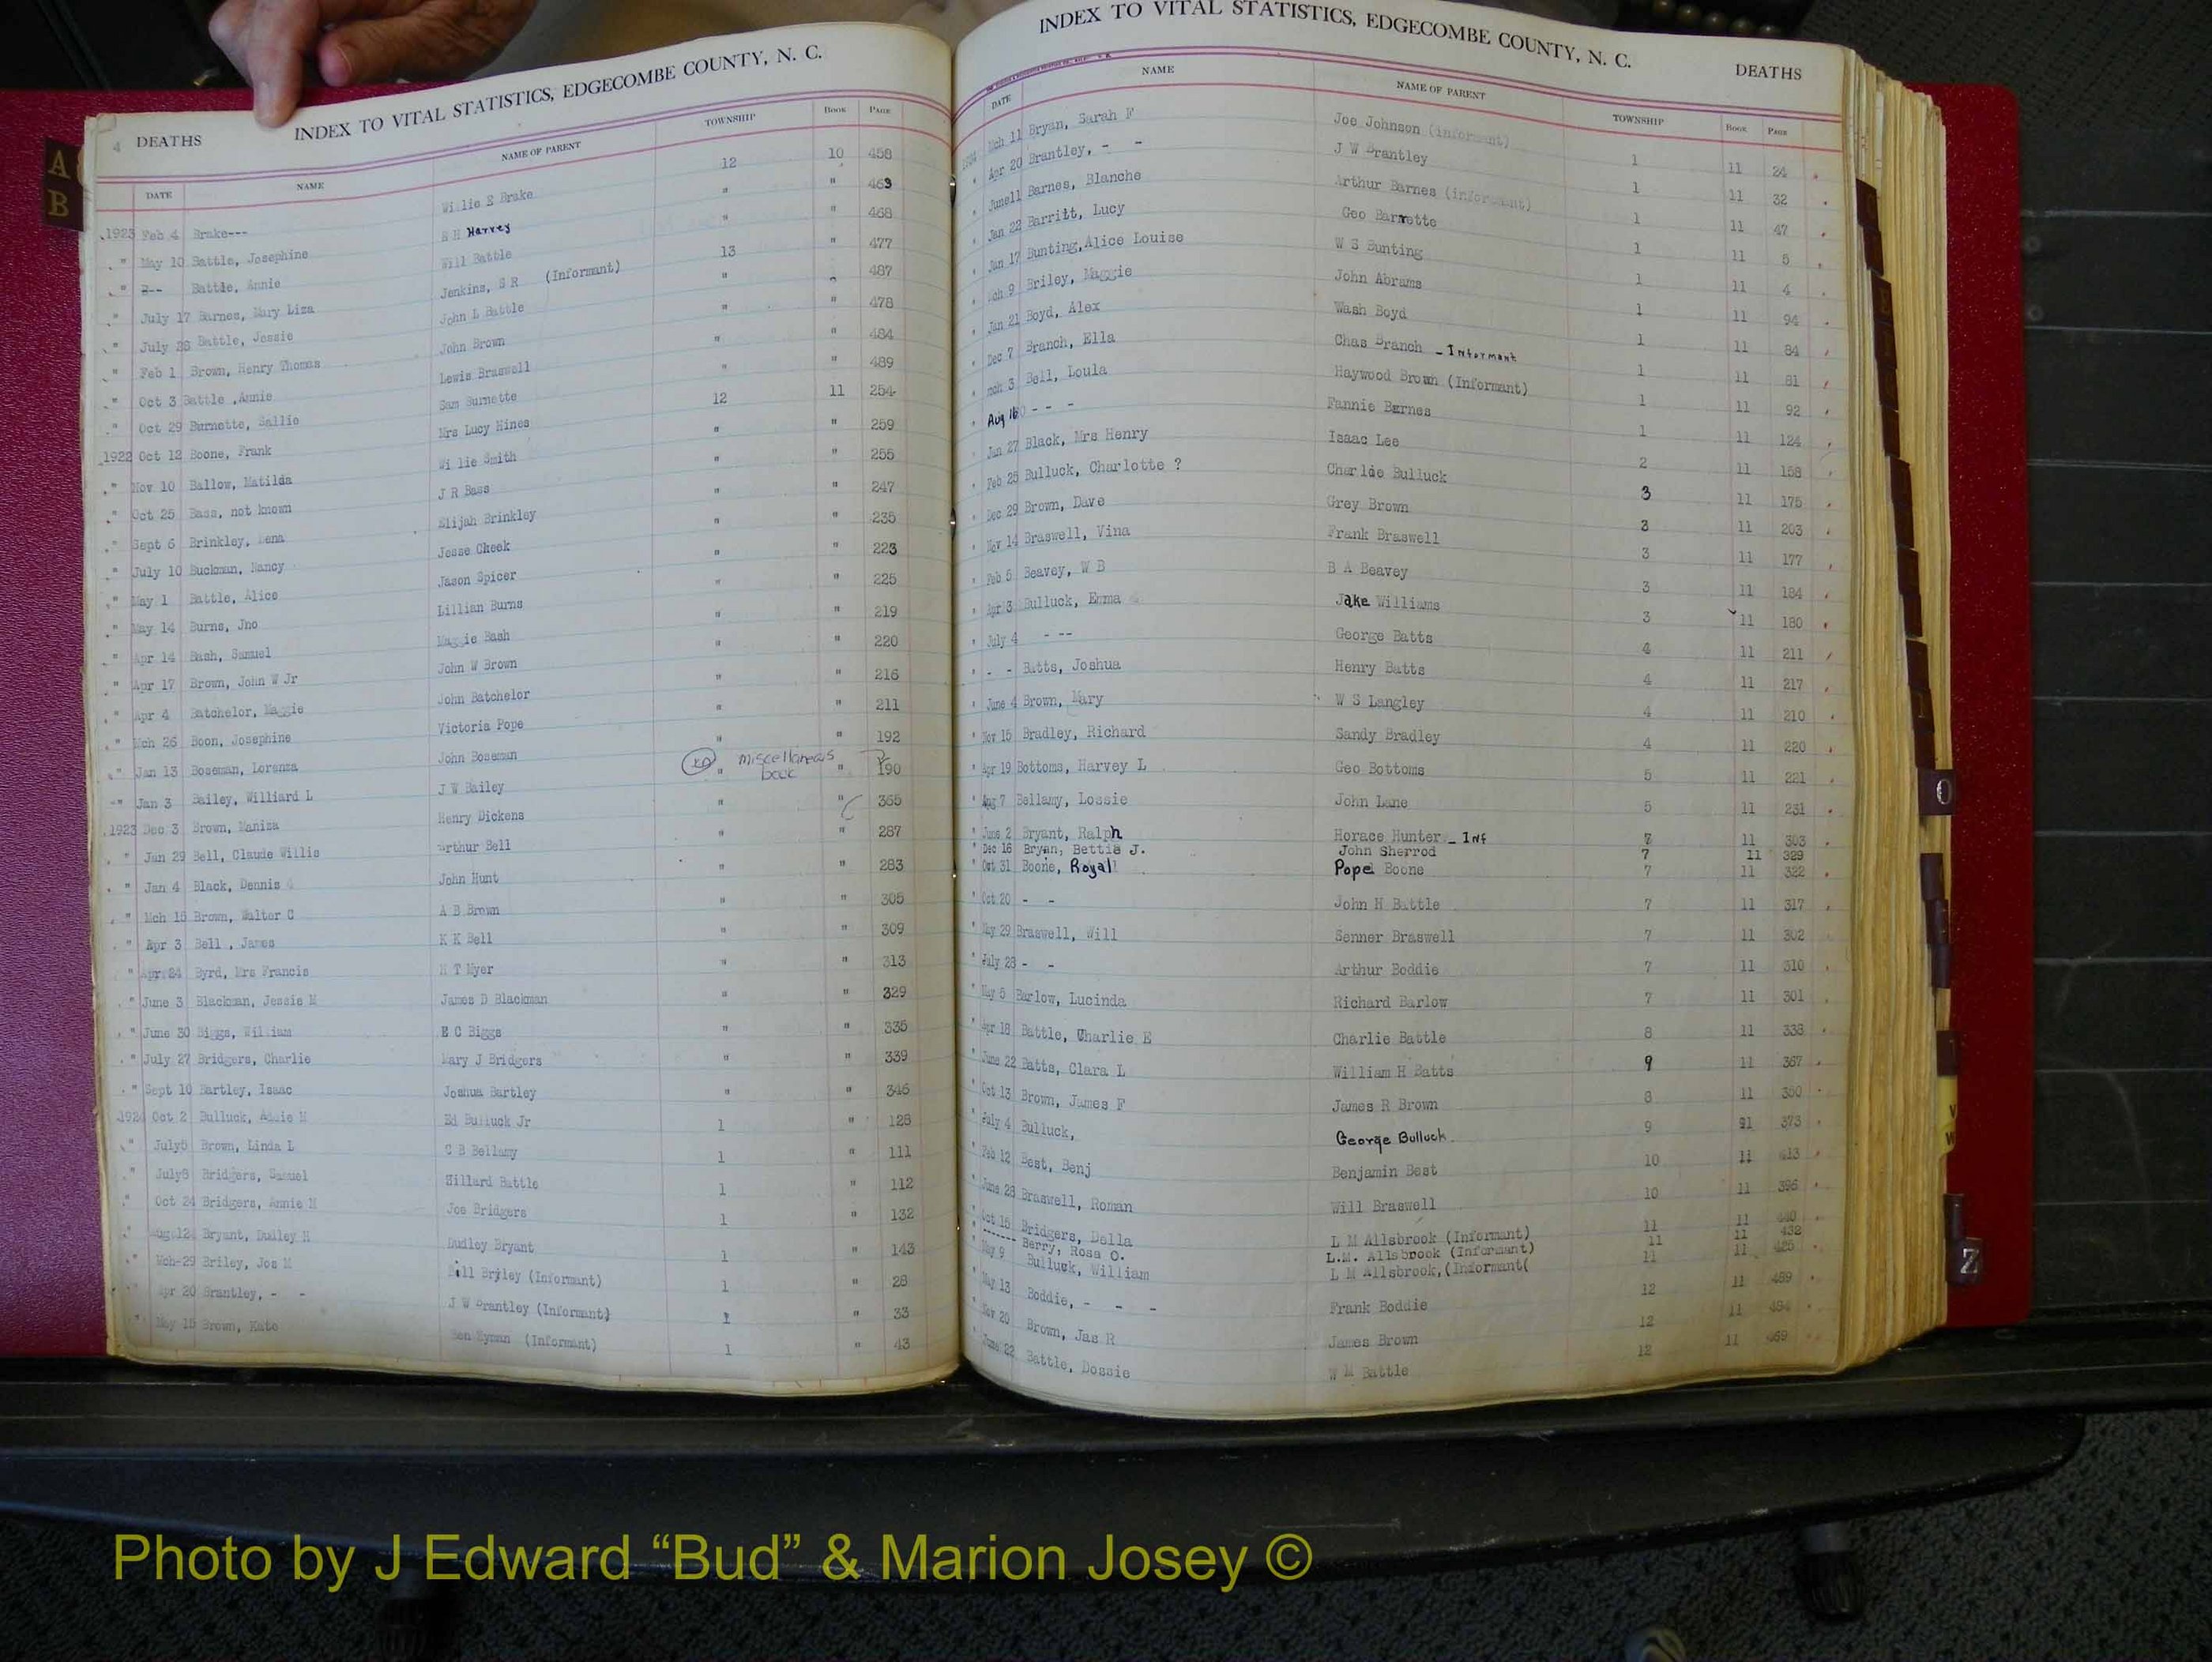 INDEX TO VITAL STATISTICS, EDGECOMBE COUNTY, N. C.
4 DEATHS
DATE NAME NAME OF PARENT TOWNSHIP BOOK PAGE
1923 Feb 4 Brake--- Willie E Brake 12 10 458
" May 10 Battle, Josephine E H Harvey " " 463
" Battle, Annie Will Battle " " 468
" July 17 Barnes, Mary Liza Jenkins, S R (Informant) 13 " 477
" July 28 Battle, Jessie John L Battle " " 487
" Feb 1 Brown, Henry Thomas John Brown " " 478
" Oct 3 Battle ,Annie Lewis Braswell " " 484
" Oct 29 Burnette, Sallie Sam Burnette " " 489
1922 Oct 12 Boone, Frank Mrs Lucy Hines 12 11 254
" Nov 10 Ballow, Matilda Willie Smith " " 259
" Oct 25 Bass, not known J R Bass " " 255
" Sept 6 Brinkley, Lena Elijah Brinkley " " 247
" July 10 Buckman, Nancy Jesse Cheek " " 235
" May 1 Battle, Alice Jason Spicer " " 223
" May 14 Burns, Jno Lillian Burns " " 225
" Apr 14 Bash, Samuel Maggie Bash " " 219
" Apr 17 Brown, John W Jr John W Brown " " 220
" Apr 4 Batchelor, Maggie John Batchelor " " 216
" Mch 26 Boon, Josephine Victoria Pope " " 211
" Jan 13 Boseman, Lorenza John Boseman " " 192
miscellaneous book
" Jan 3 Bailey, Williard L J W Bailey " " 190
1923 Dec 3 Brown, Maniza Henry Dickens " " 365
" Jan 29 Bell, Claude Willis Arthur Bell " " 287
" Jan 4 Black, Dennis John Hunt " " 283
" Mch 15 Brown, Walter C A B Brown " " 305
" Apr 3 Bell , James K K Bell " " 309
" Apr 24 Byrd, Mrs Francis H T Myer " " 313
" June 3 Blackman, Jessie M James D Blackman " " 329
" June 30 Biggs, William E C Biggs " " 335
" July 27 Bridgers, Charlie Mary J Bridgers " " 339
" Sept 10 Bartley, Isaac Joshua Bartley " " 346
1924 Oct 2 Bulluck, Addie M Ed Bulluck Jr 1 " 128
" July6 Brown, Linda L C B Bellamy 1 " 111
" July8 Bridgers, Samuel Hillard Battle 1 " 112
" Oct 24 Bridgers, Annie M Joe Bridgers 1 " 132
" Aug 12 Bryant, Dudley H Dudley Bryant 1 " 143
" Mch-29 Briley, Jos M Bill Briley (Informant) 1 " 28
" Apr 20 Brantley, - - J W Brantley (Informant) 1 " 33
" May 15 Brown, Kate Ben Hyman (Informant) 1 " 43
INDEX TO VITAL STATISTICS, EDGECOMBE COUNTY, N. C.
DEATHS
DATE NAME NAME OF PARENT TOWNSHIP BOOK PAGE
1924 Mch 11 Bryan, Sarah F Joe Johnson (informant) 1 11 24
" Apr 20 Brantley, - - J W Brantley 1 11 32
" June11 Barnes, Blanche Arthur Barnes (informant) 1 11 47
" Jan 22 Barritt, Lucy Geo Barrette 1 11 5
" Jan 17 Bunting,Alice Louise W S Bunting 1 11 4
" Mch 9 Briley, Maggie John Abrams 1 11 94
" Jan 21 Boyd, Alex Wash Boyd 1 11 84
" Dec 7 Branch, Ella Chas Branch - Informant 1 11 81
" Mch 3 Bell, Loula Haywood Brown (Informant) 1 11 92
" Aug 16 - - - Fannie Barnes 1 11 124
" Jan 27 Black, Mrs Henry Isaac Lee 2 11 158
" Feb 25 Bulluck, Charlotte ? Charlie Bulluck 3 11 175
" Dec 29 Brown, Dave Grey Brown 3 11 203
" Nov 14 Braswell, Vina Frank Braswell 3 11 177
" Feb 5 Beavey, W B B A Beavey 3 11 184
" Apr 3 Bulluck, Emma Jake Williams 3 11 180
" July 4 - -- George Batts 4 11 211
" - - Batts, Joshua Henry Batts 4 11 217
" June 4 Brown, Mary W S Langley 4 11 210
" Nov 15 Bradley, Richard Sandy Bradley 4 11 220
" Apr 19 Bottoms, Harvey L Geo Bottoms 5 11 221
" Aug 7 Bellamy, Lossie John Lane 5 11 231
" June 2 Bryant, Ralph Horace Hunter - Inf 7 11 303
" Dec 16 Bryan, Bettie J. John Sherrod 7 11 329
" Oct 31 Boone, Royal Pope Boone 7 11 322
" Oct 20 - - John H Battle 7 11 317
" May 29 Braswell, Will Senner Braswell 7 11 302
" July 28 - - Arthur Boddie 7 11 310
" May 5 Barlow, Lucinda Richard Barlow 7 11 301
" Apr 18 Battle, Charlie E Charlie Battle 8 11 338
" June 22 Batts, Clara L William H Batts 9 11 367
" Oct 13 Brown, James F James R Brown 8 11 350
" July 4 Bulluck, George Bulluck 9 91 373
" Feb 12 Best, Benj Benjamin Best 10 11 413
" June 28 Braswell, Roman Will Braswell 10 11 396
" Oct 15 Bridgers, Della L M Allsbrook (Informant) 11 11 440
" ------ Berry, Rosa O. L.M. Allsbrook (Informant) 11 11 432
" May 9 Bulluck, William L M Allsbrook,(Informant( 11 11 425
" May 13 Boddie, - - - Frank Boddie 12 11 489
" Nov 20 Brown, Jas R James Brown 12 11 494
" June 22 Battle, Dossie W M Battle 12 11 469
A
B
O
V
W
Z
Photo by J Edward “Bud” & Marion Josey ©